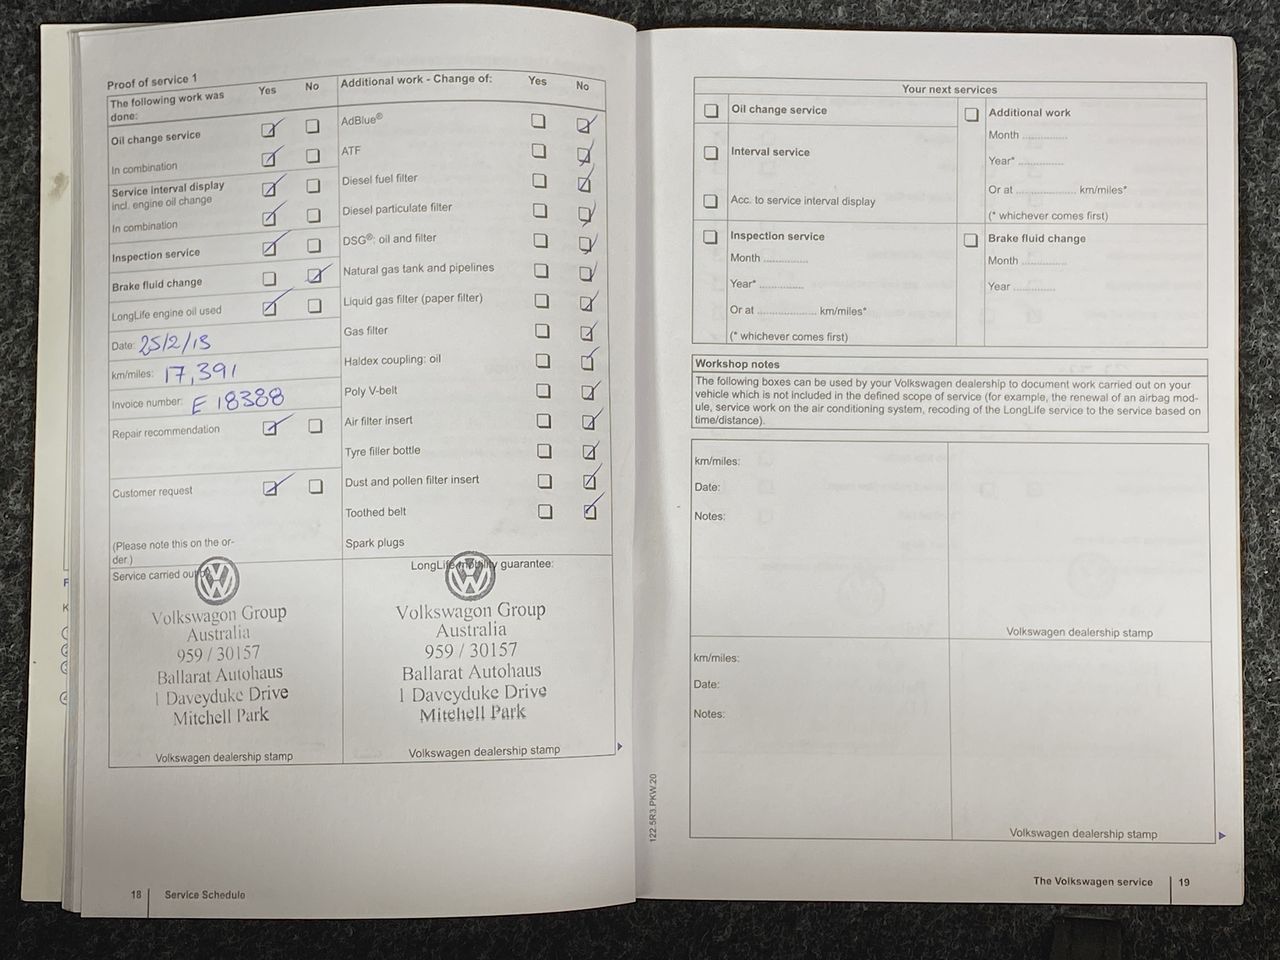 Proof of service 1
The following work was
done:
Yes
No
Additional work - Change of:
Yes
No
Oil change service
In combination
Service interval display
incl. engine oil change
In combination
Inspection service
Brake fluid change
LongLife engine oil used
Date: 25/2/13
km/miles: 17,391
Invoice number: E 18388
Repair recommendation
Customer request
(Please note this on the or-
der.)
AdBlue®
ATF
Diesel fuel filter
Diesel particulate filter
DSG®: oil and filter
Natural gas tank and pipelines
Liquid gas filter (paper filter)
Gas filter
Haldex coupling: oil
Poly V-belt
Air filter insert
Tyre filler bottle
Dust and pollen filter insert
Toothed belt
Spark plugs
Service carried out
Volkswagon Group
Australia
959 / 30157
Ballarat Autohaus
1 Daveyduke Drive
Mitchell Park
Volkswagen dealership stamp
LongLife mobility guarantee:
Volkswagon Group
Australia
959 / 30157
Ballarat Autohaus
1 Daveyduke Drive
Mitchell Park
Volkswagen dealership stamp
18
Service Schedule
F
K
Your next services
Oil change service
Interval service
Acc. to service interval display
Inspection service
Month ..............
Year* ..............
Or at .................. km/miles*
(* whichever comes first)
Additional work
Month ..............
Year* ..............
Or at .................. km/miles*
(* whichever comes first)
Brake fluid change
Month ..............
Year .............
Workshop notes
The following boxes can be used by your Volkswagen dealership to document work carried out on your
vehicle which is not included in the defined scope of service (for example, the renewal of an airbag mod-
ule, service work on the air conditioning system, recoding of the LongLife service to the service based on
time/distance).
km/miles:
Date:
Notes:
Volkswagen dealership stamp
km/miles:
Date:
Notes:
Volkswagen dealership stamp
122.5R3.PKW.20
The Volkswagen service
19